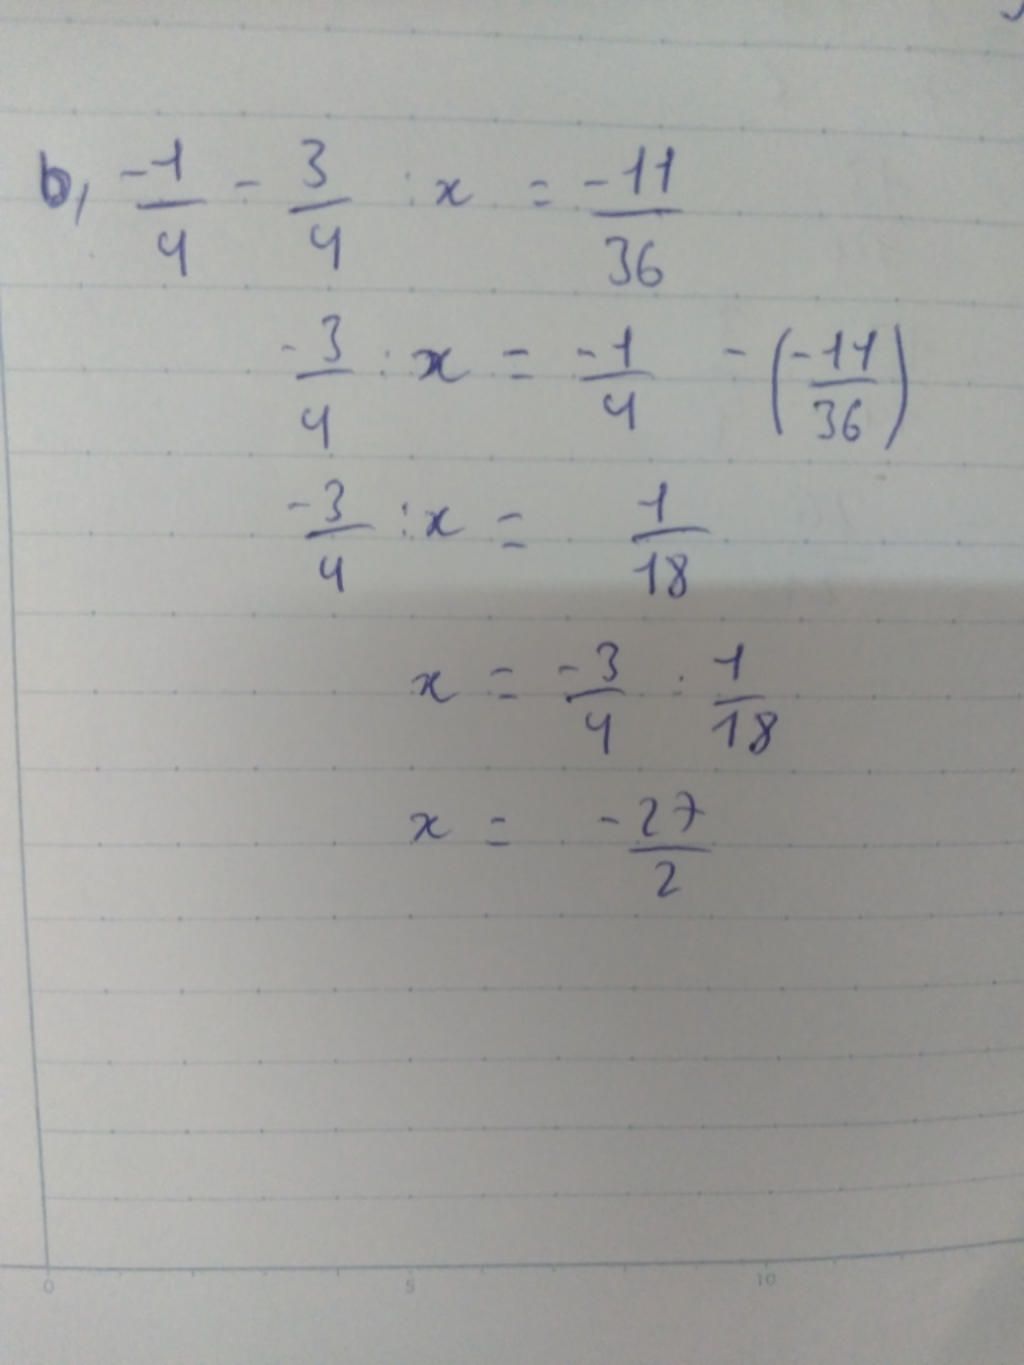 b, -1/4 - 3/4 : x = -11/36
-3/4 : x = -1/4 - (-11/36)
-3/4 : x = 1/18
x = -3/4 : 1/18
x = -27/2
0 5 10